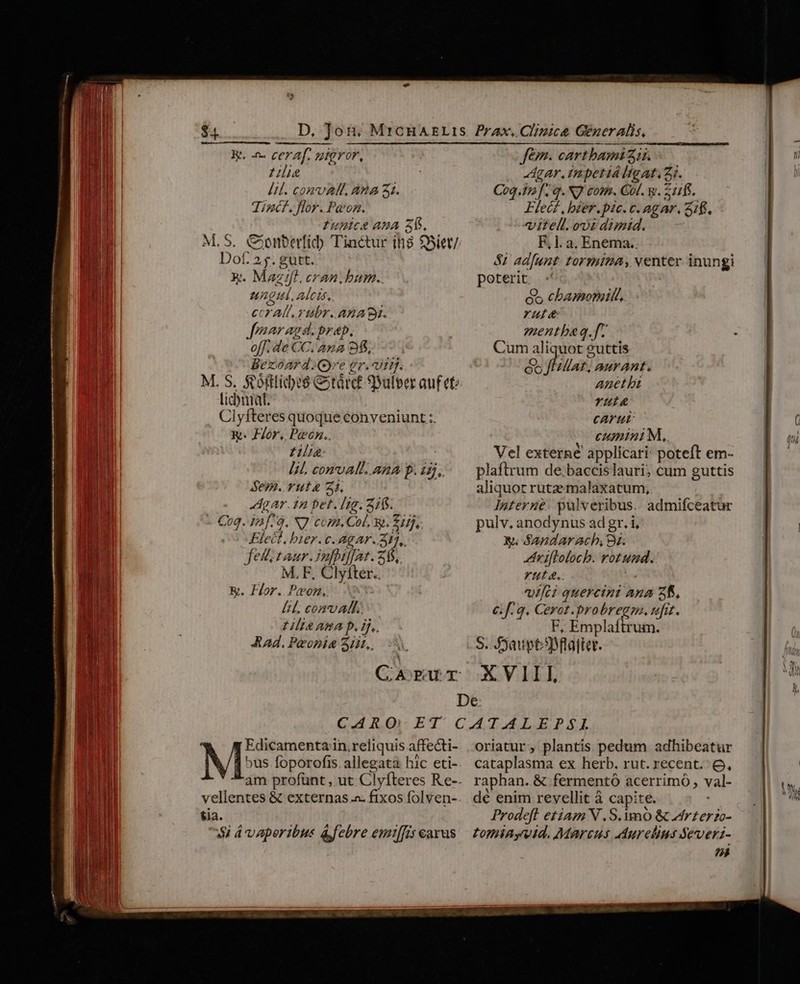 84 D. Joh. MICHAELIS Prax. Clinicæ Generalis.
℞. ceraſ. nigror,
tiliæ
lil. convall. ana ʒi.
Tinct. flor. Pæon.
tunicæ ana ʒß.
M. S. Sonderlich Tinctur ins Bier/
Doſ. 25. gutt.
℞. Magiſt. cran. hum.
ungul. alcis.
corall. rubr. ana ℈i.
ſmaragd. præp.
off. de CC. ana ℈ß,
Bezoard. Ore gr. viij.
M. S. Köſtliches Stärck Pulver auf et-
lichmal.
Clyſteres quoque conveniunt:
℞. Flor. Pæon.
tiliæ
lil. convall. ana p. iij.
Sem. rutæ ʒi.
Agar. in pet. lig. ʒiß.
Coq. inſ. q. V com. Col. ℞. ℥iij.
Elect. hier. c. agar. ʒij.
fell. taur. inſpiſſat. ʒß,
M. F. Clyſter.
℞. Flor. Pæon.
lil. convall.
tiliæ ana p. ij.
Rad. Pæoniæ ʒiii.
ſem. carthami ʒii.
Agar. in petiâ ligat. ʒi.
Coq. in ſ. q. V com. Col. ℞. ℥iiß.
Elect. hier. pic. c. agar. ʒiß,
vitell. ovi dimid.
F. l. a. Enema.
Si adſunt tormina, venter inungi
poterit
chamomill.
rutæ
menthæ q. ſ.
Cum aliquot guttis
ſtillat. aurant.
anethi
rutæ
carui
cumini M.
Vel externè applicari poteſt em-
plaſtrum de baccis lauri, cum guttis
aliquot rutæ malaxatum,
Internè pulveribus admiſceatur
pulv. anodynus ad gr. i,
℞. Sandarach. ℈i.
Ariſtoloch. rotund.
rutæ.
viſci quercini ana ʒß,
c. ſ. q. Cerot. pro bregm. uſit.
F. Emplaſtrum.
S. Haupt-Pflaſter.
CAPUT XVIII.
De
CARO ET CATALEPSI.
Medicamenta in reliquis affecti-
bus ſoporoſis allegata hîc eti-
am proſunt, ut Clyſteres Re-
vellentes & externas fixos ſolven-
tia.
Si à vaporibus à febre emiſſis carus
oriatur, plantis pedum adhibeatur
cataplasma ex herb. rut. recent.
raphan. & fermentô acerrimô, val-
dè enim revellit à capite.
Prodeſt etiam V. S. imò & Arterio-
tomia, vid. Marcus Aurelius Severi-
nũ